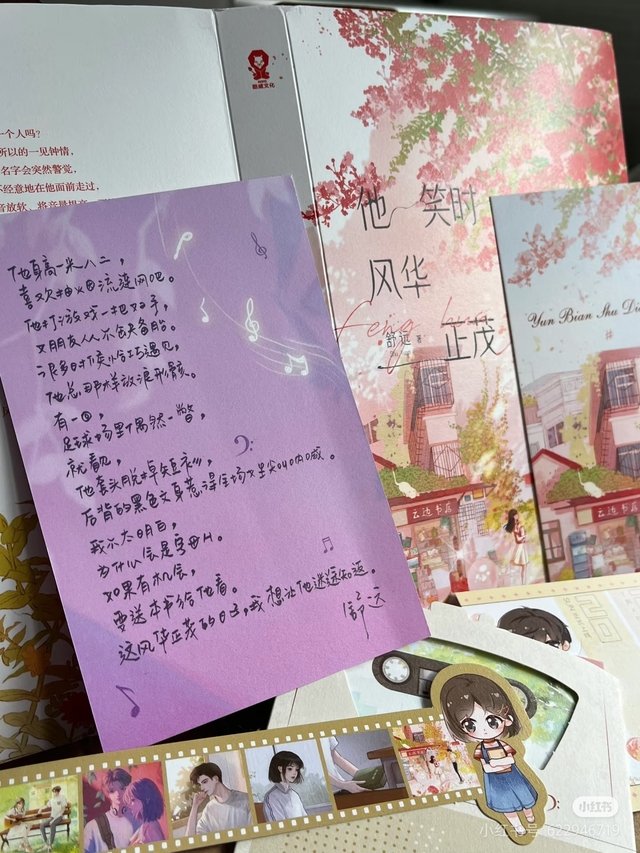 一个人吗?
所以的一见钟情,
名字会突然警觉,
不经意地在他面前走过,
凯威文化
他笑时
风华
正茂
feng hua
舒远 著
Yun Bian Shu Dian
云边书店
云边书店
他身高一米八二,
喜欢抽烟流连网吧。
他打游戏一把好手,
又朋友从不含糊备胎。
很多时候小巧遇见,
他总那样放浪形骸。
有一回,
足球场里偶然一瞥,
就看见,
他套头脱掉短衫,
后背的黑色文身惹得全场尖叫呐喊。
我不太明白,
为什么
如果有机会,
要送本书给他看。
这风华正茂的日子,我想让他迷途知返。
舒远
小红书
小红书号:622946719